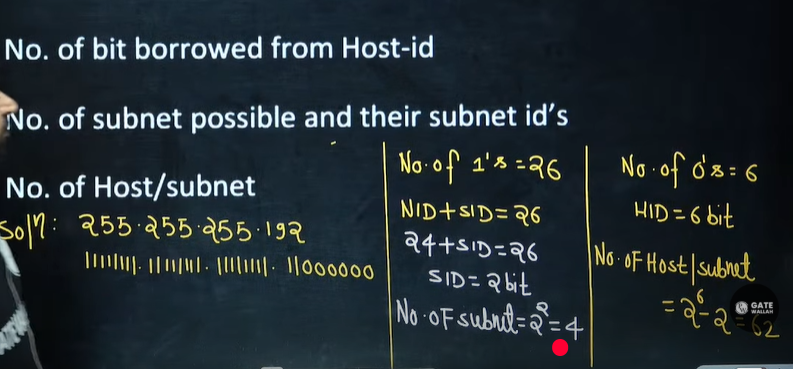 No. of bit borrowed from Host-id
No. of subnet possible and their subnet id's
No. of Host/subnet
Soln: 255.255.255.192
11111111.11111111.11111111.11000000
No. of 1's = 26
NID+SID=26
24+SID=26
SID=2bit
No. OF subnet=2²=4
No. of 0's=6
HID=6 bit
No. OF Host/subnet
=2⁶-2=62
GATE
WALLAH